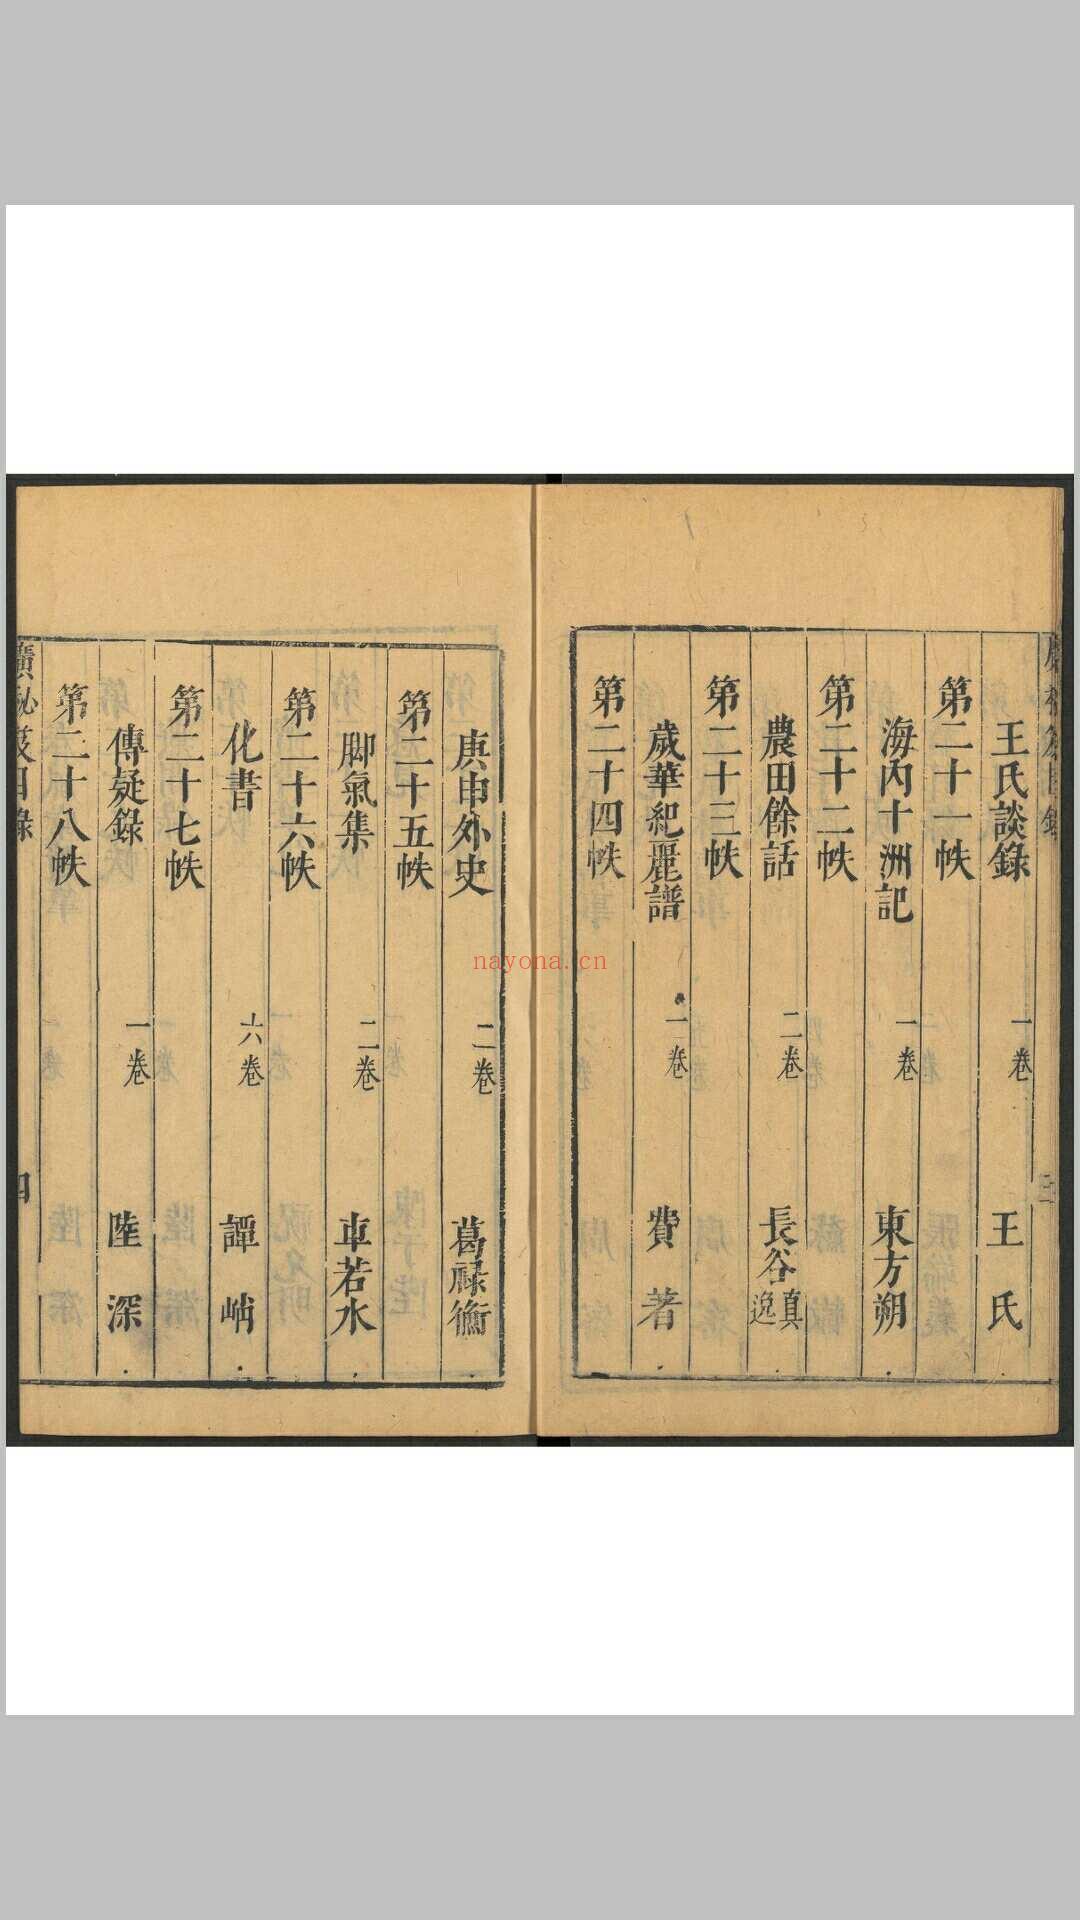 王氏談錄 一卷 王氏
第二十一帙
海內十洲記 一卷 東方朔
第二十二帙
農田餘話 二卷 長谷真逸
第二十三帙
歲華紀麗譜 一卷 費著
第二十四帙
庚申外史 二卷 葛祿衜
第二十五帙
脚氣集 二卷 車若水
第二十六帙
化書 六卷 譚峭
第二十七帙
傳疑錄 一卷 陸深
第二十八帙
廣秘笈目錄 四
nayona.cn